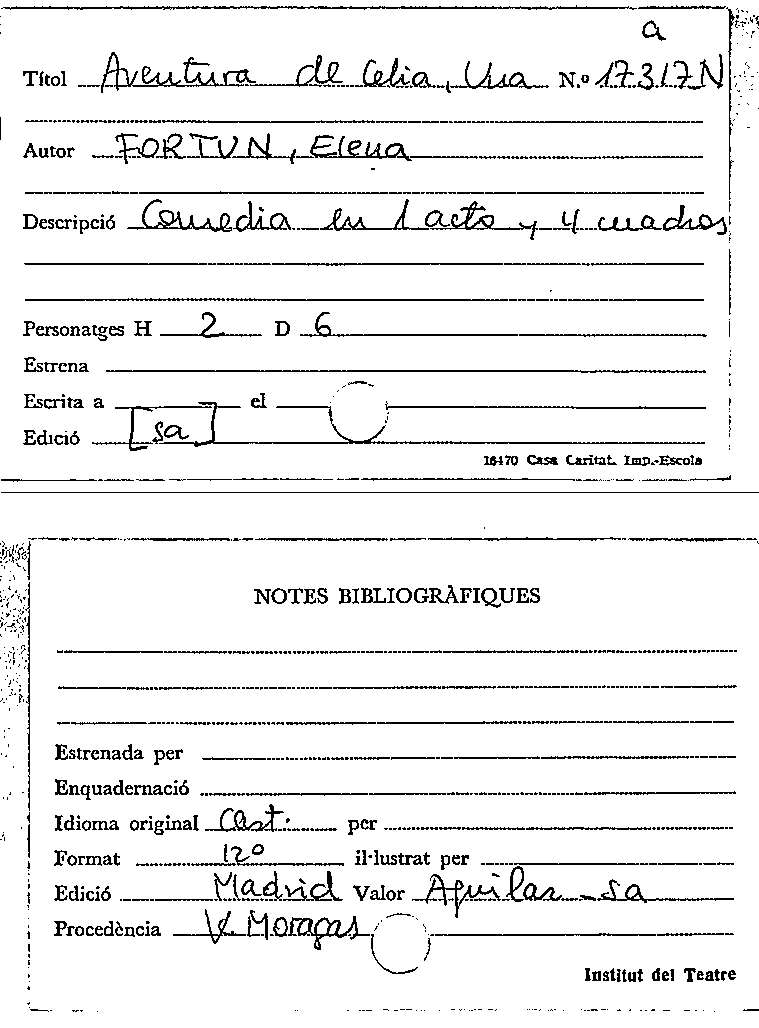 a
Títol Aventura de Celia, Una N.º 17317N
Autor FORTUN, Elena
Descripció Comedia en 1 acto y 4 cuadros
Personatges H 2 D 6
Estrena
Escrita a el
Edició [sa]
16470 Casa Caritat. Imp.-Escola
NOTES BIBLIOGRÀFIQUES
Estrenada per
Enquadernació
Idioma original Cast. per
Format 12º il·lustrat per
Edició Madrid Valor Aguilar - sa
Procedència V. Moragas
Institut del Teatre